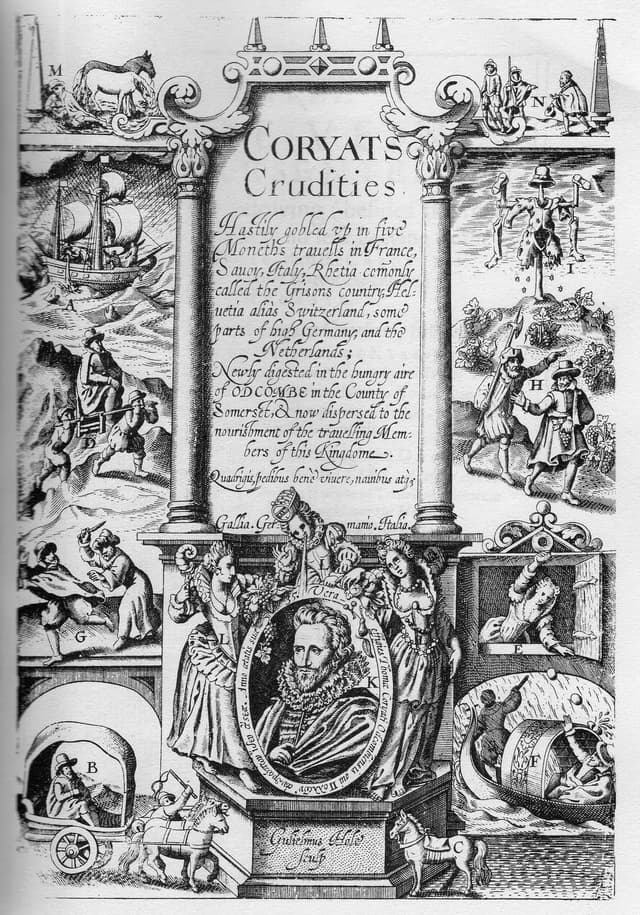 M
N
CORYATS
Crudities.
Hastily gobled vp in five
Moneths travells in France,
Savoy, Italy, Rhetia comonly
called the Grisons country, Hel-
vetia alias Switzerland, some
parts of high Germany, and the
Netherlands;
Newly digested in the hungry aire
of ODCOMBE in the County of
Somerset, & now dispersed to the
nourishment of the travelling Mem-
bers of this Kingdome.
Quadrigis, pedibus benè viuere, nauibus atq;
Gallia. Ger mania. Italia.
A
I
D
H
G
L
Vera effigies Thomæ Coryati
K
E
B
F
C
Gulielmus Hole
sculp